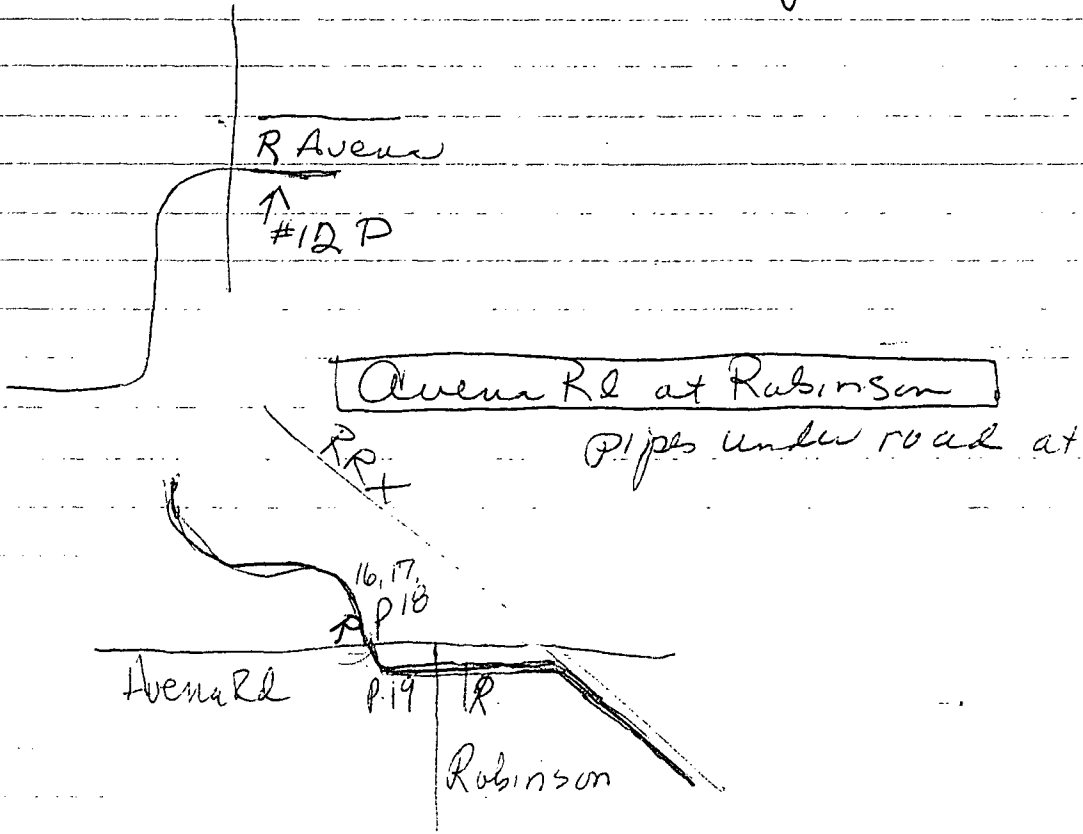 R Avena
#12 P
Avena Rd at Robinson
pipes under road at
RR
16, 17,
P 18
P
Avena Rd
P.19
R
Robinson